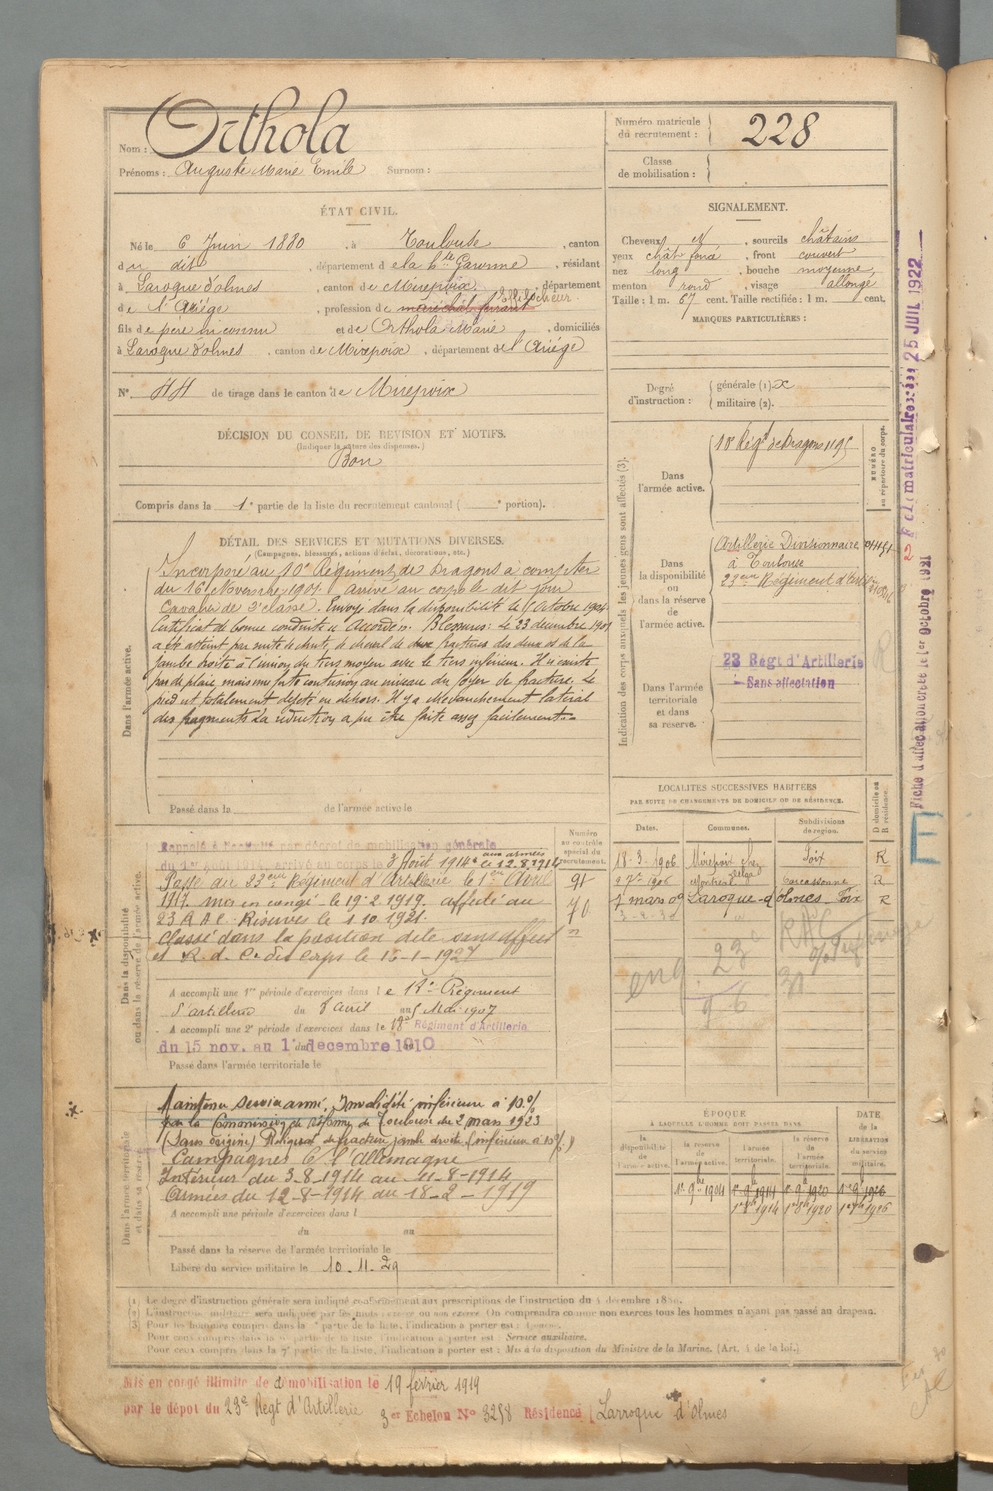 Nom : Orthola
Prénoms : Auguste Marie Emile Surnom :
Numéro matricule du recrutement : 228
Classe de mobilisation :
ÉTAT CIVIL.
Né le 6 Juin 1880, à Toulouse, canton
du dit, département de la Hte Garonne, résidant
à Laroque d'olmes, canton de Mirepoix, département
de l'Ariége, profession de maréchal ferrant
fils de père inconnu et de Orthola Marie, domiciliés
à Laroque d'olmes, canton de Mirepoix, département de l'Ariége
N° 44 de tirage dans le canton de Mirepoix
SIGNALEMENT.
Cheveux et, sourcils châtains
yeux chât foncé, front couvert
nez long, bouche moyenne,
menton rond, visage allongé
Taille : 1 m. 67 cent. Taille rectifiée : 1 m. cent.
MARQUES PARTICULIÈRES :
Degré d'instruction : générale (1). militaire (2).
DÉCISION DU CONSEIL DE REVISION ET MOTIFS.
(Indiquer la nature des dispenses.)
Bon
Compris dans la 1e partie de la liste du recrutement cantonal ( portion).
DÉTAIL DES SERVICES ET MUTATIONS DIVERSES.
(Campagnes, blessures, actions d'éclat, décorations, etc.)
Dans l'armée active.
Incorporé au 10e Régiment de Dragons à compter
du 16 Novembre 1901. arrivé au corps le dit jour
Cavalier de 2e classe. Envoyé dans la disponibilité le Octobre 1904.
Certificat de bonne conduite "Accordé". Blessures: Le 23 décembre 1901
a été atteint par suite de chute, de cheval de deux fractures des deux os de la
jambe droite à l'union du tiers moyen avec le tiers inférieur. Il n'existe
pas de plaie mais une forte contusion au niveau du foyer de fracture. Le
pied est totalement déjeté en dehors. Il y a chevauchement latéral
des fragments. La réduction a pu être faite assez facilement.
Passé dans la de l'armée active le
Indication des corps auxquels les jeunes gens sont affectés (3).
NUMÉRO au répertoire du corps.
Dans l'armée active. 10e Régt de Dragons 1195
Dans la disponibilité ou dans la réserve de l'armée active.
Artillerie Divisionnaire
à Toulouse
23eme Régiment d'
Dans l'armée territoriale et dans sa réserve.
23 Régt d'Artillerie
Sans affectation
LOCALITÉS SUCCESSIVES HABITÉES
PAR SUITE DE CHANGEMENTS DE DOMICILE OU DE RÉSIDENCE.
Dates. Communes. Subdivisions de région. D domicile ou R résidence.
18-3-1906 Mirepoix chez Foix R
1906 Montréal Carcassonne R
7 mars 09 Laroque-d'olmes Foix R
Dans la disponibilité ou dans la réserve de l'armée active.
Numéro au contrôle spécial du recrutement.
91
70
Rappelé à l'activité par décret de mobilisation générale
du 1er Août 1914, arrivé au corps le 3 Août 1914. aux armées le 12.8.1914
Passé au 23eme Régiment d'Artillerie le 1er Avril
1917. mis en congé le 19-2-1919. affecté au
23 R.A.C. Réserves le 1.10.1921.
Classé dans la position dite sans affect
et R. d. C. des Corps le 15-1-1927
A accompli une 1re période d'exercices dans le 18e Régiment
d'artillerie du 8 avril au 5 Mai 1907
A accompli une 2e période d'exercices dans le 18e Régiment d'Artillerie
du 15 nov. au 1er decembre 1910
Passé dans l'armée territoriale le
eng 23
96
Dans l'armée territoriale et dans sa réserve.
Maintenu Service armé. Invalidité inférieure à 10%
par la Commission de réforme de Toulouse du 2 mars 1923
(Sans origine) Reliquat de fracture jambe droite (inférieur à 10%)
Campagnes C. l'Allemagne
Intérieur du 3-8-1914 au 11-8-1914
Armées du 12-8-1914 au 18-2-1919
A accompli une période d'exercices dans l
du au
Passé dans la réserve de l'armée territoriale le
Libéré du service militaire le 10-11-29
ÉPOQUE
À LAQUELLE L'HOMME DOIT PASSER DANS
la disponibilité de l'armée active. la réserve de l'armée active. l'armée territoriale. la réserve de l'armée territoriale. DATE de la LIBÉRATION du service militaire.
1er 9bre 1904 1er 9bre 1914 1er 9bre 1920 1er 9bre 1926
1er 8bre 1914 1er 8bre 1920 1er 8bre 1926
(1) Le degré d'instruction générale sera indiqué conformément aux prescriptions de l'instruction du 4 décembre 1889.
(2) L'instruction militaire sera indiquée par les mots : exercé ou non exercé. On comprendra comme non exercés tous les hommes n'ayant pas passé au drapeau.
(3) Pour les hommes compris dans la partie de la liste, l'indication à porter est :
Pour ceux compris dans la 6e partie de la liste, l'indication à porter est : Service auxiliaire.
Pour ceux compris dans la 7e partie de la liste, l'indication à porter est : Mis à la disposition du Ministre de la Marine. (Art. 4 de la loi.)
Mis en congé illimité de démobilisation le 19 février 1919
par le dépôt du 23e Régt d'Artillerie 3er Echelon N° 3258 Résidence Larroque d'Olmes
25 JUIL 1922
Fiche d'affectation créée le 1er Octobre 1921